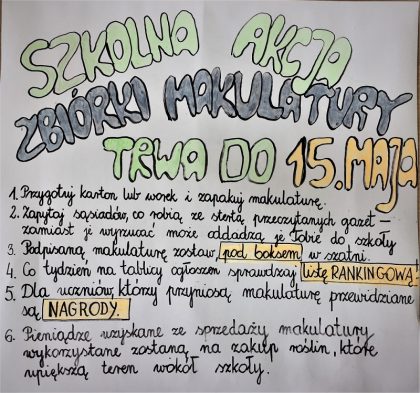 SZKOLNA AKCJA
ZBIÓRKI MAKULATURY
TRWA DO 15.MAJA
1. Przygotuj karton lub worek i zapakuj makulaturę.
2. Zapytaj sąsiadów, co robią ze stertą przeczytanych gazet –
zamiast je wyrzucać może oddadzą je Tobie do szkoły
3. Podpisaną makulaturę zostaw pod boksem w szatni.
4. Co tydzień na tablicy ogłoszeń sprawdzaj listę RANKINGOWĄ!
5. Dla uczniów, którzy przyniosą makulaturę przewidziane
są NAGRODY.
6. Pieniądze uzyskane ze sprzedaży makulatury
wykorzystane zostaną na zakup roślin, które
upiększą teren wokół szkoły.